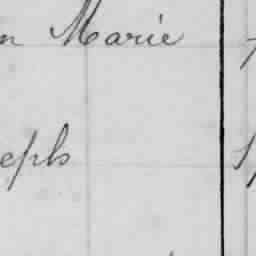 n Marie
eph